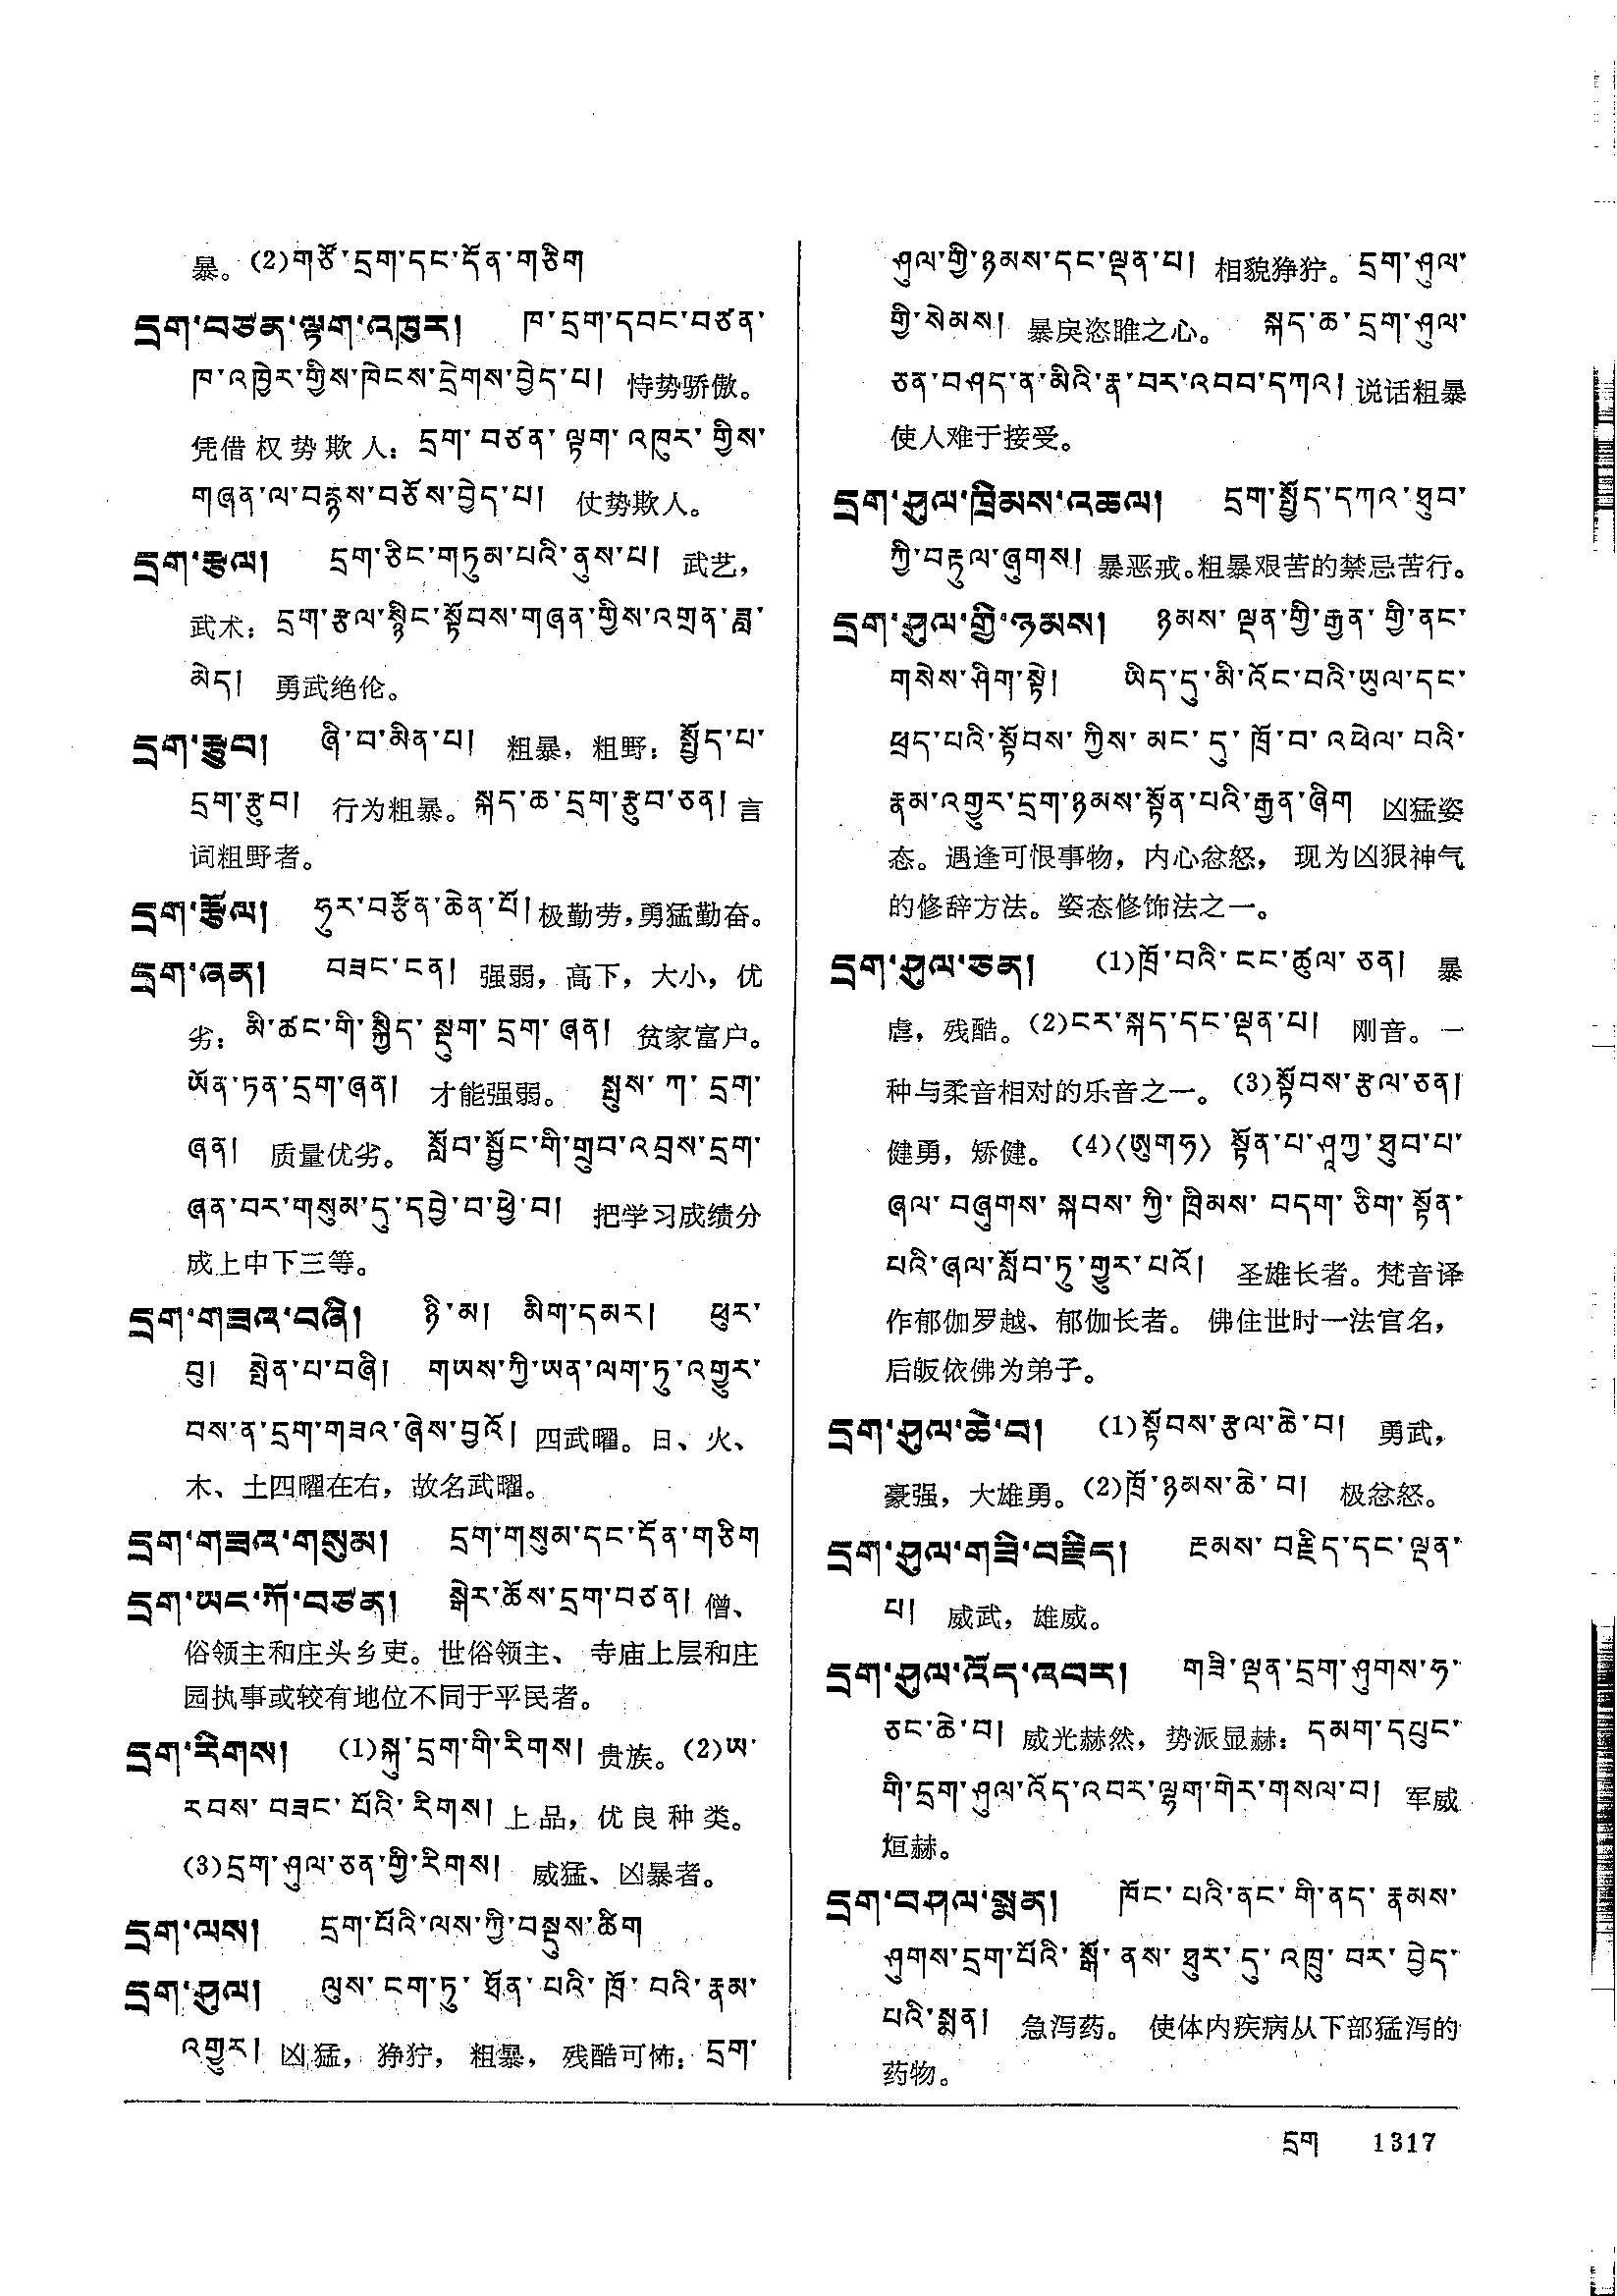 暴。(2)གཙོ་དྲག་དང་དོན་གཅིག
དྲག་བཙན་ལྟག་འཁུར། ཁ་དྲག་དབང་བཙན་
ཁ་འཁྱེར་གྱིས་ཁེངས་དྲེགས་བྱེད་པ། 恃势骄傲。
凭借权势欺人：དྲག་བཙན་ལྟག་འཁུར་གྱིས་
གཞན་ལ་བརྙས་བཅོས་བྱེད་པ། 仗势欺人。
དྲག་རྩལ། དྲག་ཅིང་གཏུམ་པའི་ནུས་པ། 武艺，
武术：དྲག་རྩལ་སྙིང་སྟོབས་གཞན་གྱིས་འགྲན་ཟླ་
མེད། 勇武绝伦。
དྲག་རྩུབ། ཞི་བ་མིན་པ། 粗暴，粗野：སྤྱོད་པ་
དྲག་རྩུབ། 行为粗暴。སྐད་ཆ་དྲག་རྩུབ་ཅན། 言
词粗野者。
དྲག་རྩོལ། ཧུར་བརྩོན་ཆེན་པོ། 极勤劳,勇猛勤奋。
དྲག་ཞན། བཟང་ངན། 强弱，高下，大小，优
劣：མི་ཚང་གི་སྐྱིད་སྡུག་དྲག་ཞན། 贫家富户。
ཡོན་ཏན་དྲག་ཞན། 才能强弱。 སྤུས་ཀ་དྲག་
ཞན། 质量优劣。 སློབ་སྦྱོང་གི་གྲུབ་འབྲས་དྲག་
ཞན་བར་གསུམ་དུ་དབྱེ་བ་ཕྱེ་བ། 把学习成绩分
成上中下三等。
དྲག་གཟའ་བཞི། ཉི་མ། མིག་དམར། ཕུར་
བུ། སྤེན་པ་བཞི། གཡས་ཀྱི་ཡན་ལག་ཏུ་འགྱུར་
བས་ན་དྲག་གཟའ་ཞེས་བྱའོ། 四武曜。日、火、
木、土四曜在右，故名武曜。
དྲག་གཟའ་གསུམ། དྲག་གསུམ་དང་དོན་གཅིག
དྲག་ཡང་ཀོ་བཙན། སྒེར་ཆོས་དྲག་བཙན། 僧、
俗领主和庄头乡吏。世俗领主、寺庙上层和庄
园执事或较有地位不同于平民者。
དྲག་རིགས། (1)སྐུ་དྲག་གི་རིགས། 贵族。(2)ཡ་
རབས་བཟང་པོའི་རིགས། 上品，优良种类。
(3)དྲག་ཤུལ་ཅན་གྱི་རིགས། 威猛、凶暴者。
དྲག་ལས། དྲག་པོའི་ལས་ཀྱི་བསྡུས་ཚིག
དྲག་ཤུལ། ལུས་ངག་ཏུ་ཐོན་པའི་ཁྲོ་བའི་རྣམ་
འགྱུར། 凶猛，狰狞，粗暴，残酷可怖：དྲག་
ཤུལ་གྱི་ཉམས་དང་ལྡན་པ། 相貌狰狞。དྲག་ཤུལ་
གྱི་སེམས། 暴戾恣睢之心。 སྐད་ཆ་དྲག་ཤུལ་
ཅན་བཤད་ན་མིའི་རྣ་བར་འབབ་དཀའ། 说话粗暴
使人难于接受。
དྲག་ཤུལ་ཁྲིམས་འཆལ། དྲག་སྤྱོད་དཀའ་ཐུབ་
ཀྱི་བརྟུལ་ཞུགས། 暴恶戒。粗暴艰苦的禁忌苦行。
དྲག་ཤུལ་གྱི་ཉམས། ཉམས་ལྡན་གྱི་རྒྱན་གྱི་ནང་
གསེས་ཤིག་སྟེ། ཡིད་དུ་མི་འོང་བའི་ཡུལ་དང་
ཕྲད་པའི་སྟོབས་ཀྱིས་མང་དུ་ཁྲོ་བ་འཕེལ་བའི་
རྣམ་འགྱུར་དྲག་ཉམས་སྟོན་པའི་རྒྱན་ཞིག 凶猛姿
态。遇逢可恨事物，内心忿怒，现为凶狠神气
的修辞方法。姿态修饰法之一。
དྲག་ཤུལ་ཅན། (1)ཁྲོ་བའི་ངང་ཚུལ་ཅན། 暴
虐，残酷。(2)ངར་སྐད་དང་ལྡན་པ། 刚音。一
种与柔音相对的乐音之一。(3)སྟོབས་རྩལ་ཅན།
健勇，矫健。(4)〈ཨུགཏ〉 སྟོན་པ་ཤཱཀྱ་ཐུབ་པ་
ཞལ་བཞུགས་སྐབས་ཀྱི་ཁྲིམས་བདག་ཅིག་སྟོན་
པའི་ཞལ་སློབ་ཏུ་གྱུར་པའོ། 圣雄长者。梵音译
作郁伽罗越、郁伽长者。佛住世时一法官名，
后皈依佛为弟子。
དྲག་ཤུལ་ཆེ་བ། (1)སྟོབས་རྩལ་ཆེ་བ། 勇武，
豪强，大雄勇。(2)ཁྲོ་ཉམས་ཆེ་བ། 极忿怒。
དྲག་ཤུལ་གཟི་བརྗིད། ངམས་བརྗིད་དང་ལྡན་
པ། 威武，雄威。
དྲག་ཤུལ་འོད་འབར། གཟི་ལྡན་དྲག་ཤུགས་ཧ་
ཅང་ཆེ་བ། 威光赫然，势派显赫：དམག་དཔུང་
གི་དྲག་ཤུལ་འོད་འབར་ལྷག་གེར་གསལ་བ། 军威
烜赫。
དྲག་བཤལ་སྨན། ཁོང་པའི་ནང་གི་ནད་རྣམས་
ཤུགས་དྲག་པོའི་སྒོ་ནས་ཐུར་དུ་འཁྲུ་བར་བྱེད་
པའི་སྨན། 急泻药。 使体内疾病从下部猛泻的
药物。
དྲག 1317